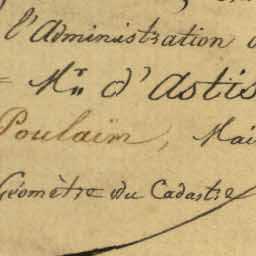 l'Administration
= Mr d'Astis
Poulain, Mai
Géomètre du Cadastre